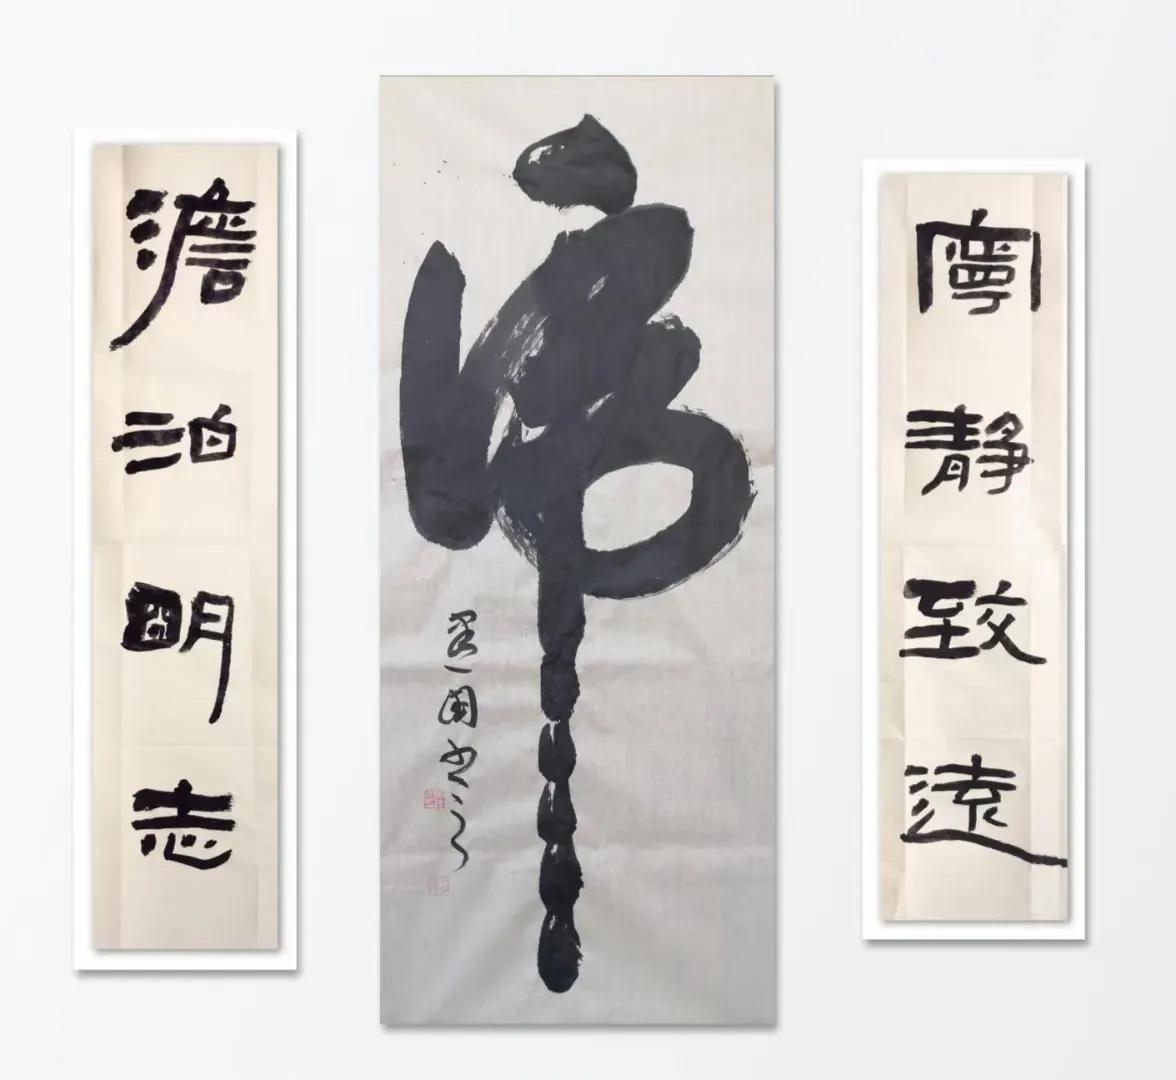 澹泊明志
虎
寧靜致遠